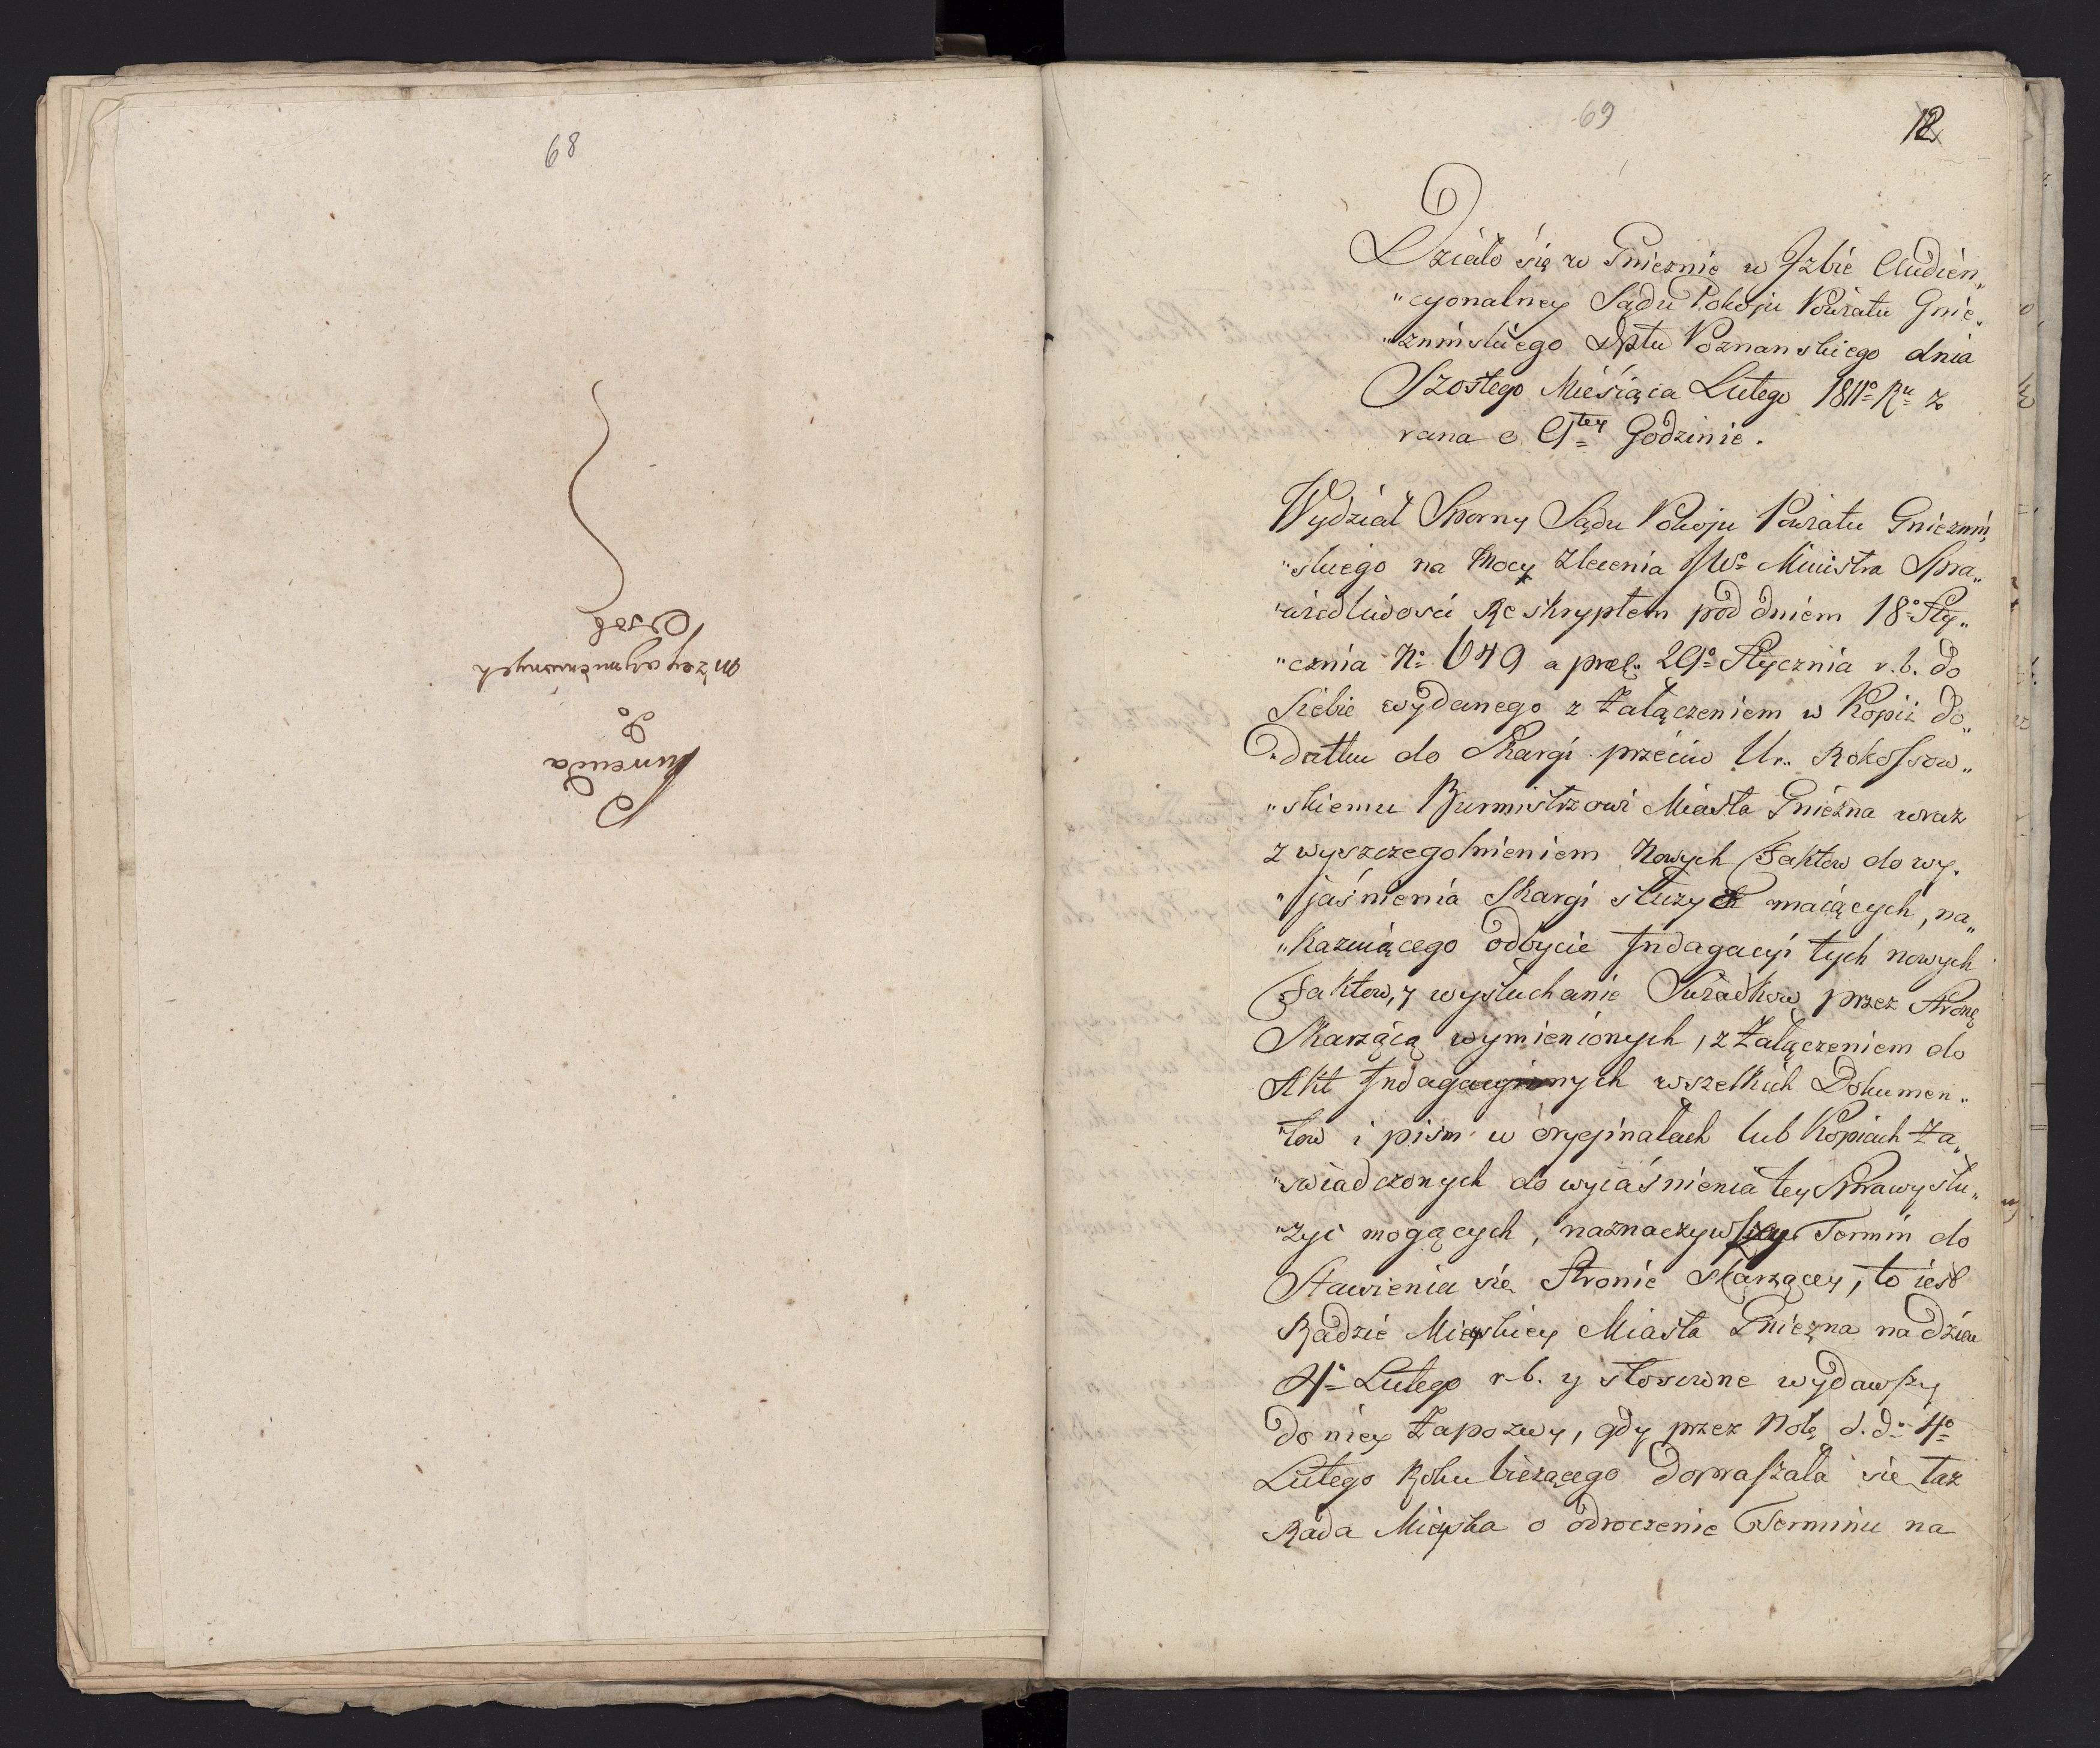 68
Kurrenda
do
niżey wymienionych
Osób
69
12
Działo się w Gnieznie w Izbie Audien„
„cyonalney Sądu Pokoju Powiatu Gnie„
„znińskiego Dptu Poznanskiego dnia
Szostego Miesiąca Lutego 1811º Ru z
rana o 9tey Godzinie.
Wydział Sporny Sądu Pokoju Powiatu Gnieznin„
„skiego na Mocy Zlecenia JWº Ministra Spra„
„wiedliwosci Reskryptem pod dniem 18º Sty„
„cznia Nº 649 a præs. 29º Stycznia r. b. do
Siebie wydanego z Załączeniem w Kopii do„
„datku do Skargi przeciw Ur. Rokossow„
„skiemu Burmistrzowi Miasta Gniezna wraz
z wyszczegolnieniem Nowych Faktow do wy„
„jaśnienia Skargi służyć maiących, na„
„kazuiącego odbycie Indagacyi tych nowych
Faktow, y wysłuchanie Swiadkow przez Stronę
Skarżącą wymienionych, z Załączeniem do
Akt Indagacyinych wszelkich Dokumen„
„tow i pism w oryginałach lub Kopiach Za„
„swiadczonych do wyiaśnienia tey Sprawy słu„
„żyć mogących, naznaczywszy Termin do
Stawienia się Stronie skarżącey, to iest
Radzie Mieyskiey Miasta Gniezna na dzien
4º Lutego r. b. y stosowne wydawszy
do niey Zapozwy, gdy przez Notę d. d. 4º
Lutego Roku bieżącego dopraszała się taż
Rada Mieyska o odroczenie Terminu na